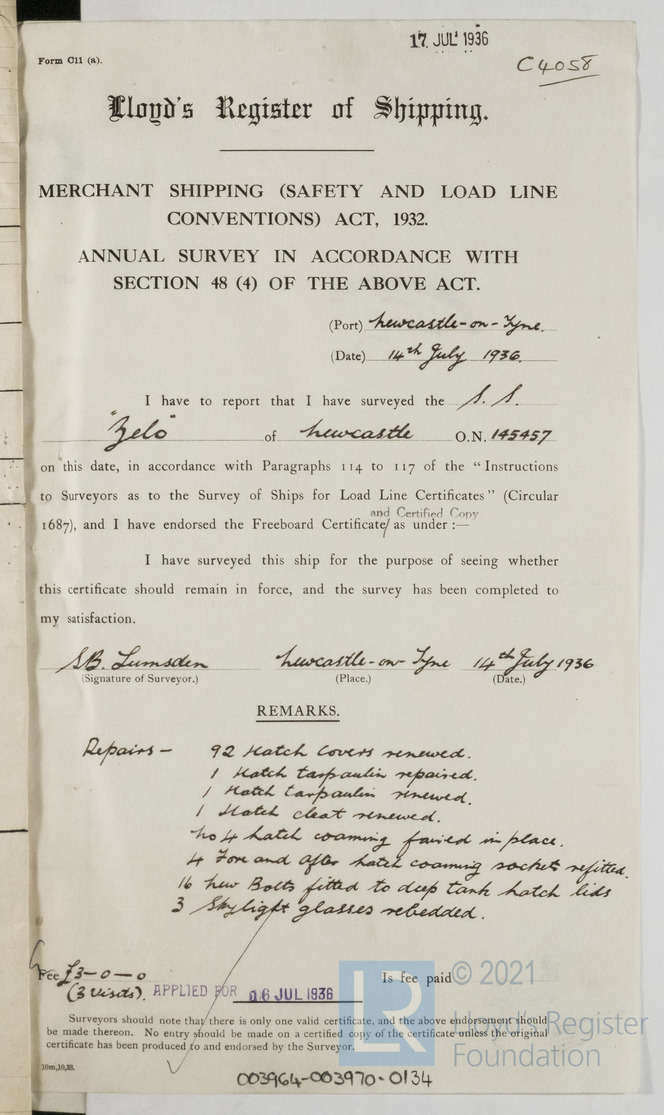 17 JUL 1936
Form C11 (a).
C4058
Lloyd's Register of Shipping.
MERCHANT SHIPPING (SAFETY AND LOAD LINE
CONVENTIONS) ACT, 1932.
ANNUAL SURVEY IN ACCORDANCE WITH
SECTION 48 (4) OF THE ABOVE ACT.
(Port) Newcastle-on-Tyne.
(Date) 14th July 1936.
I have to report that I have surveyed the S.S.
"Zelo" of Newcastle O.N. 145457
on this date, in accordance with Paragraphs 114 to 117 of the "Instructions
to Surveyors as to the Survey of Ships for Load Line Certificates" (Circular
and Certified Copy
1687), and I have endorsed the Freeboard Certificate/ as under :—
I have surveyed this ship for the purpose of seeing whether
this certificate should remain in force, and the survey has been completed to
my satisfaction.
S.B. Lumsden Newcastle-on-Tyne 14th July 1936
(Signature of Surveyor.) (Place.) (Date.)
REMARKS.
Repairs — 92 Hatch Covers renewed.
1 Hatch tarpaulin repaired.
1 Hatch tarpaulin renewed.
1 Hatch cleat renewed.
No 4 hatch coaming faired in place.
4 Fore and After hatch coaming sockets refitted.
16 New Bolts fitted to deep tank hatch lids
3 Skylight glasses rebedded.
Fee £3-0-0 Is fee paid
(3 Visits). APPLIED FOR 16 JUL 1936
Surveyors should note that there is only one valid certificate, and the above endorsement should
be made thereon. No entry should be made on a certified copy of the certificate unless the original
certificate has been produced to and endorsed by the Surveyor.
10m,10,33.
003964-003970-0134
© 2021
LR
Lloyd's Register
Foundation